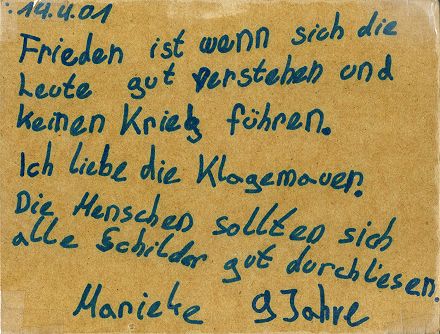 14.4.01
Frieden ist wenn sich die
Leute gut verstehen und
keinen Krieg führen.
Ich liebe die Klagemauer.
Die Menschen sollten sich
alle Schilder gut durchliesen.
Marieke 9 Jahre